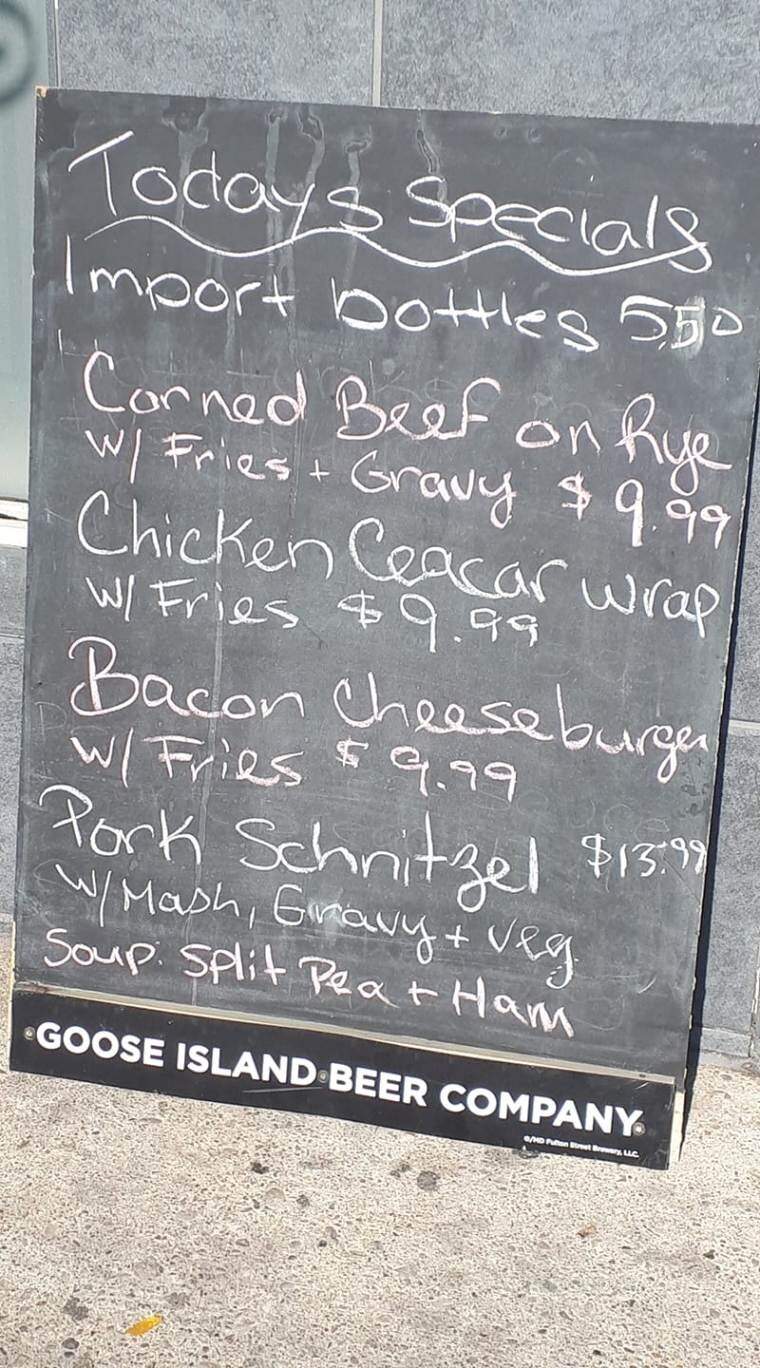 Todays Specials
Import bottles 5.50
Corned Beef on Rye
W/ Fries + Gravy $9.99
Chicken Ceacar wrap
W/ Fries $9.99
Bacon Cheeseburger
W/ Fries $9.99
Pork Schnitzel $13.99
W/ Mash, Gravy + veg
Soup: Split Pea + Ham
GOOSE ISLAND BEER COMPANY
®/MD Fulton Street Brewery, LLC.